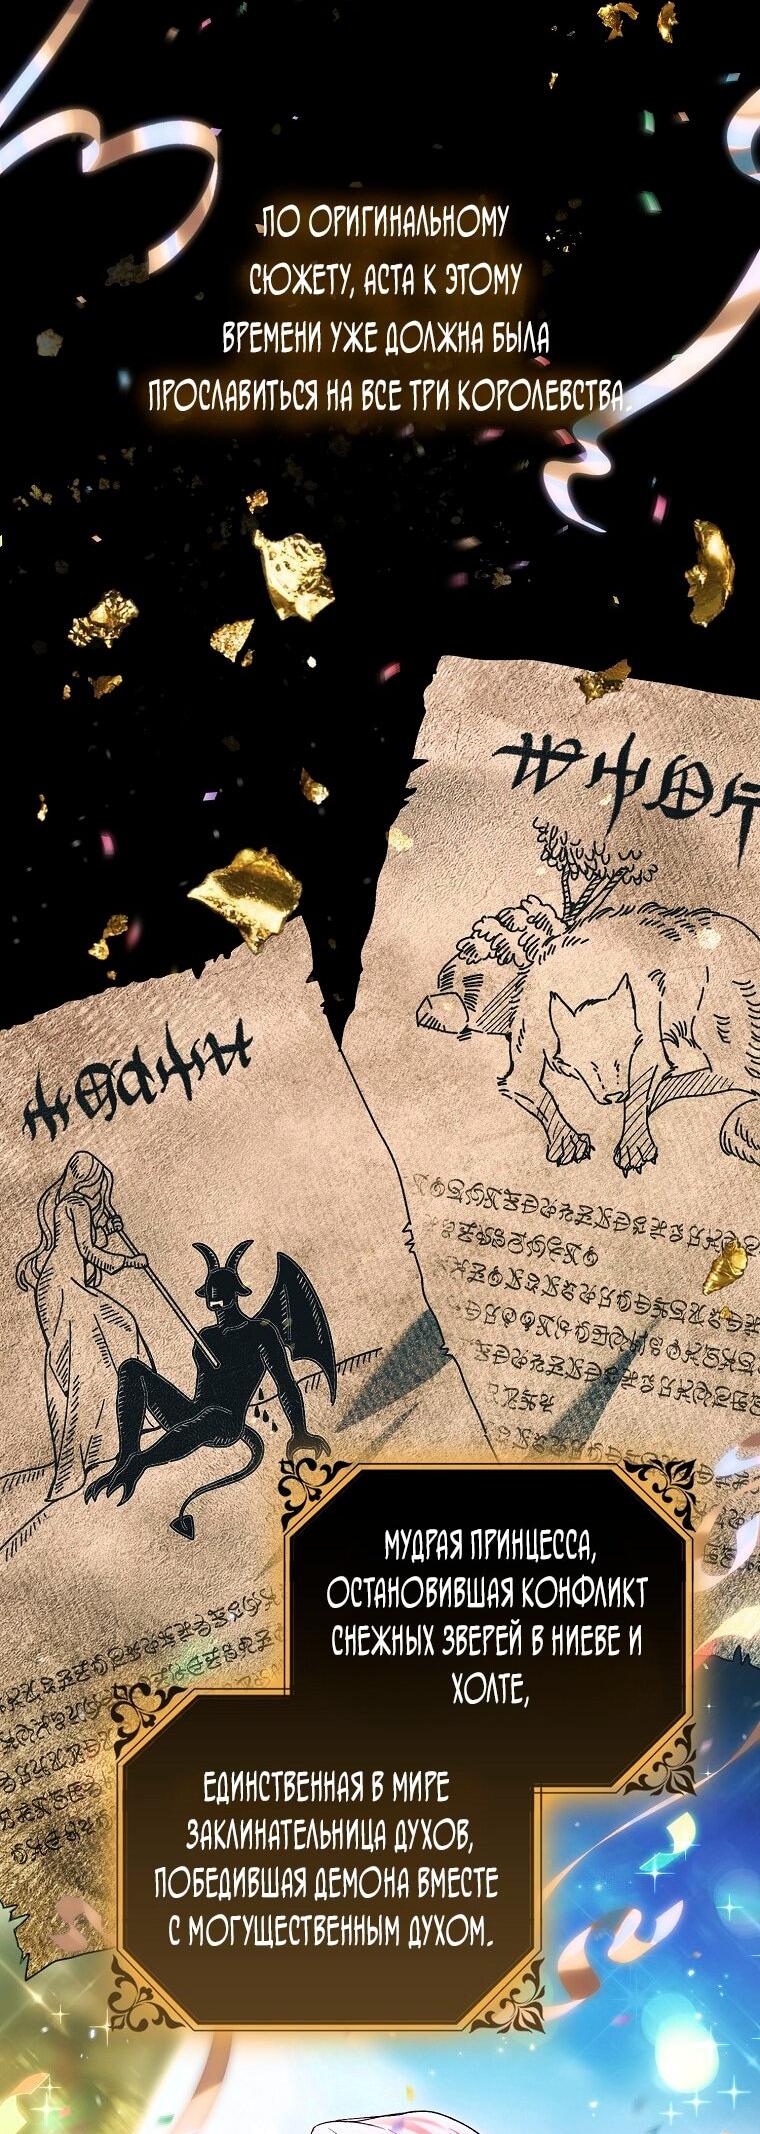 ПО ОРИГИНАЛЬНОМУ
СЮЖЕТУ, АСТА К ЭТОМУ
ВРЕМЕНИ УЖЕ ДОЛЖНА БЫЛА
ПРОСЛАВИТЬСЯ НА ВСЕ ТРИ КОРОЛЕВСТВА.
МУДРАЯ ПРИНЦЕССА,
ОСТАНОВИВШАЯ КОНФЛИКТ
СНЕЖНЫХ ЗВЕРЕЙ В НИЕВЕ И
ХОЛТЕ,
ЕДИНСТВЕННАЯ В МИРЕ
ЗАКЛИНАТЕЛЬНИЦА ДУХОВ,
ПОБЕДИВШАЯ ДЕМОНА ВМЕСТЕ
С МОГУЩЕСТВЕННЫМ ДУХОМ.